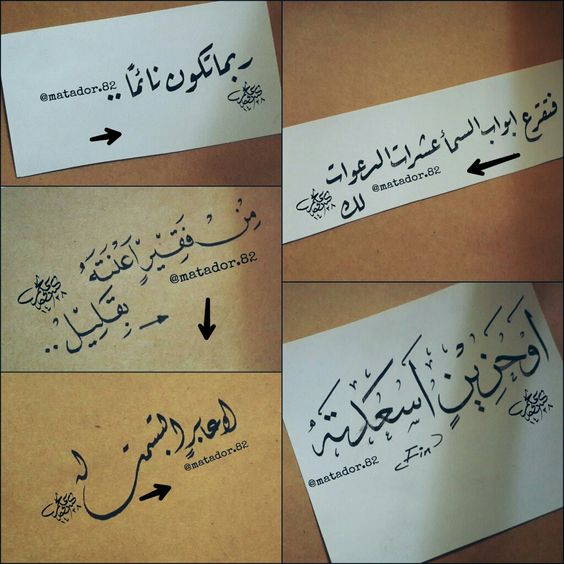 ربما تكون نائمًا ..
@matador.82
فتقرع ابواب السمأ عشرات الدعوات
لك
@matador.82
مِنْ فَقِيْرٍ أَعَنْتَهُ
@matador.82
بِقَلِيْلْ ..
او عابرٍ ابتسمت له
@matador.82
اَوْحَزِيْنٍ اَسْعَدْتَهُ
@matador.82
(Fin)